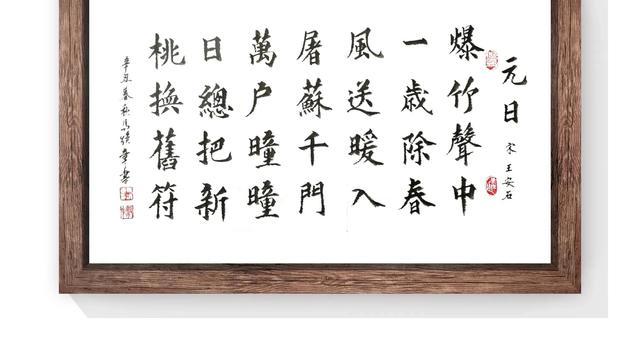 元日 宋 王安石
爆竹聲中
一歲除春
風送暖入
屠蘇千門
萬户曈曈
日總把新
桃換舊符
辛丑暮秋